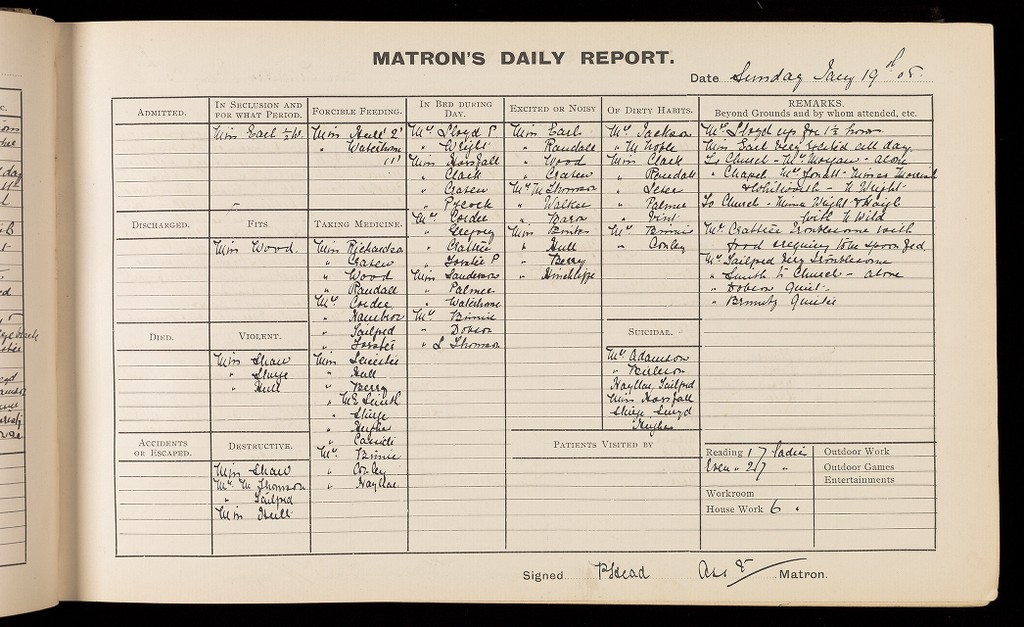 MATRON'S DAILY REPORT.
Date Sunday Jany 19th 05
ADMITTED.
IN SECLUSION AND FOR WHAT PERIOD.
Miss Earl ½ h.
FORCIBLE FEEDING.
Miss Hull 2'
" Waterhouse
11'
IN BED DURING DAY.
Mrs Lloyd P
" Wright
Miss Horsfall
" Clark
" Craven
" Pocock
Mrs Corder
" Gregory
" Crabtree
" Forster P
Miss Sanderson
" Palmer
" Waterhouse
Mrs Binnie
" Dobson
" S Thomson
EXCITED OR NOISY
Miss Earl
" Randall
" Wood
" Craven
Mrs M Thomson
" Walker
" Barra
Miss Brinton
" Hull
" Berry
" Hinchliffe
OF DIRTY HABITS.
Mrs Jackson
" M Noble
Miss Clark
" Randall
" Palmer
" Vint
Mrs Binnie
" Conley
REMARKS.
Beyond Grounds and by whom attended, etc.
Mrs Lloyd up for 1½ hours.
Miss Earl very excited all day
To Church - Mrs Morgan - alone
" Chapel Mrs Misses
& Whitworth - N Wright
To Church - Misses Wright & Haigh
with N Wild
Mrs Crabtree troublesome with
food requiring to be spoon fed
Mrs Tailford very troublesome
" Smith to Church - alone
" Dobson Quiet
" Quieter
DISCHARGED.
FITS
Miss Wood.
TAKING MEDICINE.
Miss Richardson
" Craven
" Wood
" Randall
Mrs Corder
" Tailford
" Forster
Miss Leicester
" Hull
" Berry
" M E Smith
" Sturge
" Hughes
" Cassidi
Mrs Binnie
" Conley
" Hayllar
DIED.
VIOLENT.
Miss Shaw
" Sturge
" Hull
SUICIDAL.
Mrs Adamson
" Burleson
Hayllar, Tailford
Miss Horsfall
Sturge Lloyd
Hughes
ACCIDENTS OR ESCAPED.
DESTRUCTIVE.
Miss Shaw
Mrs M Thomson
" Tailford
Miss Hull
PATIENTS VISITED BY
Reading 17 ladies
Outdoor Work
Even " 27 "
Outdoor Games
Entertainments
Workroom
House Work 6 "
Signed P Head Asst Matron.